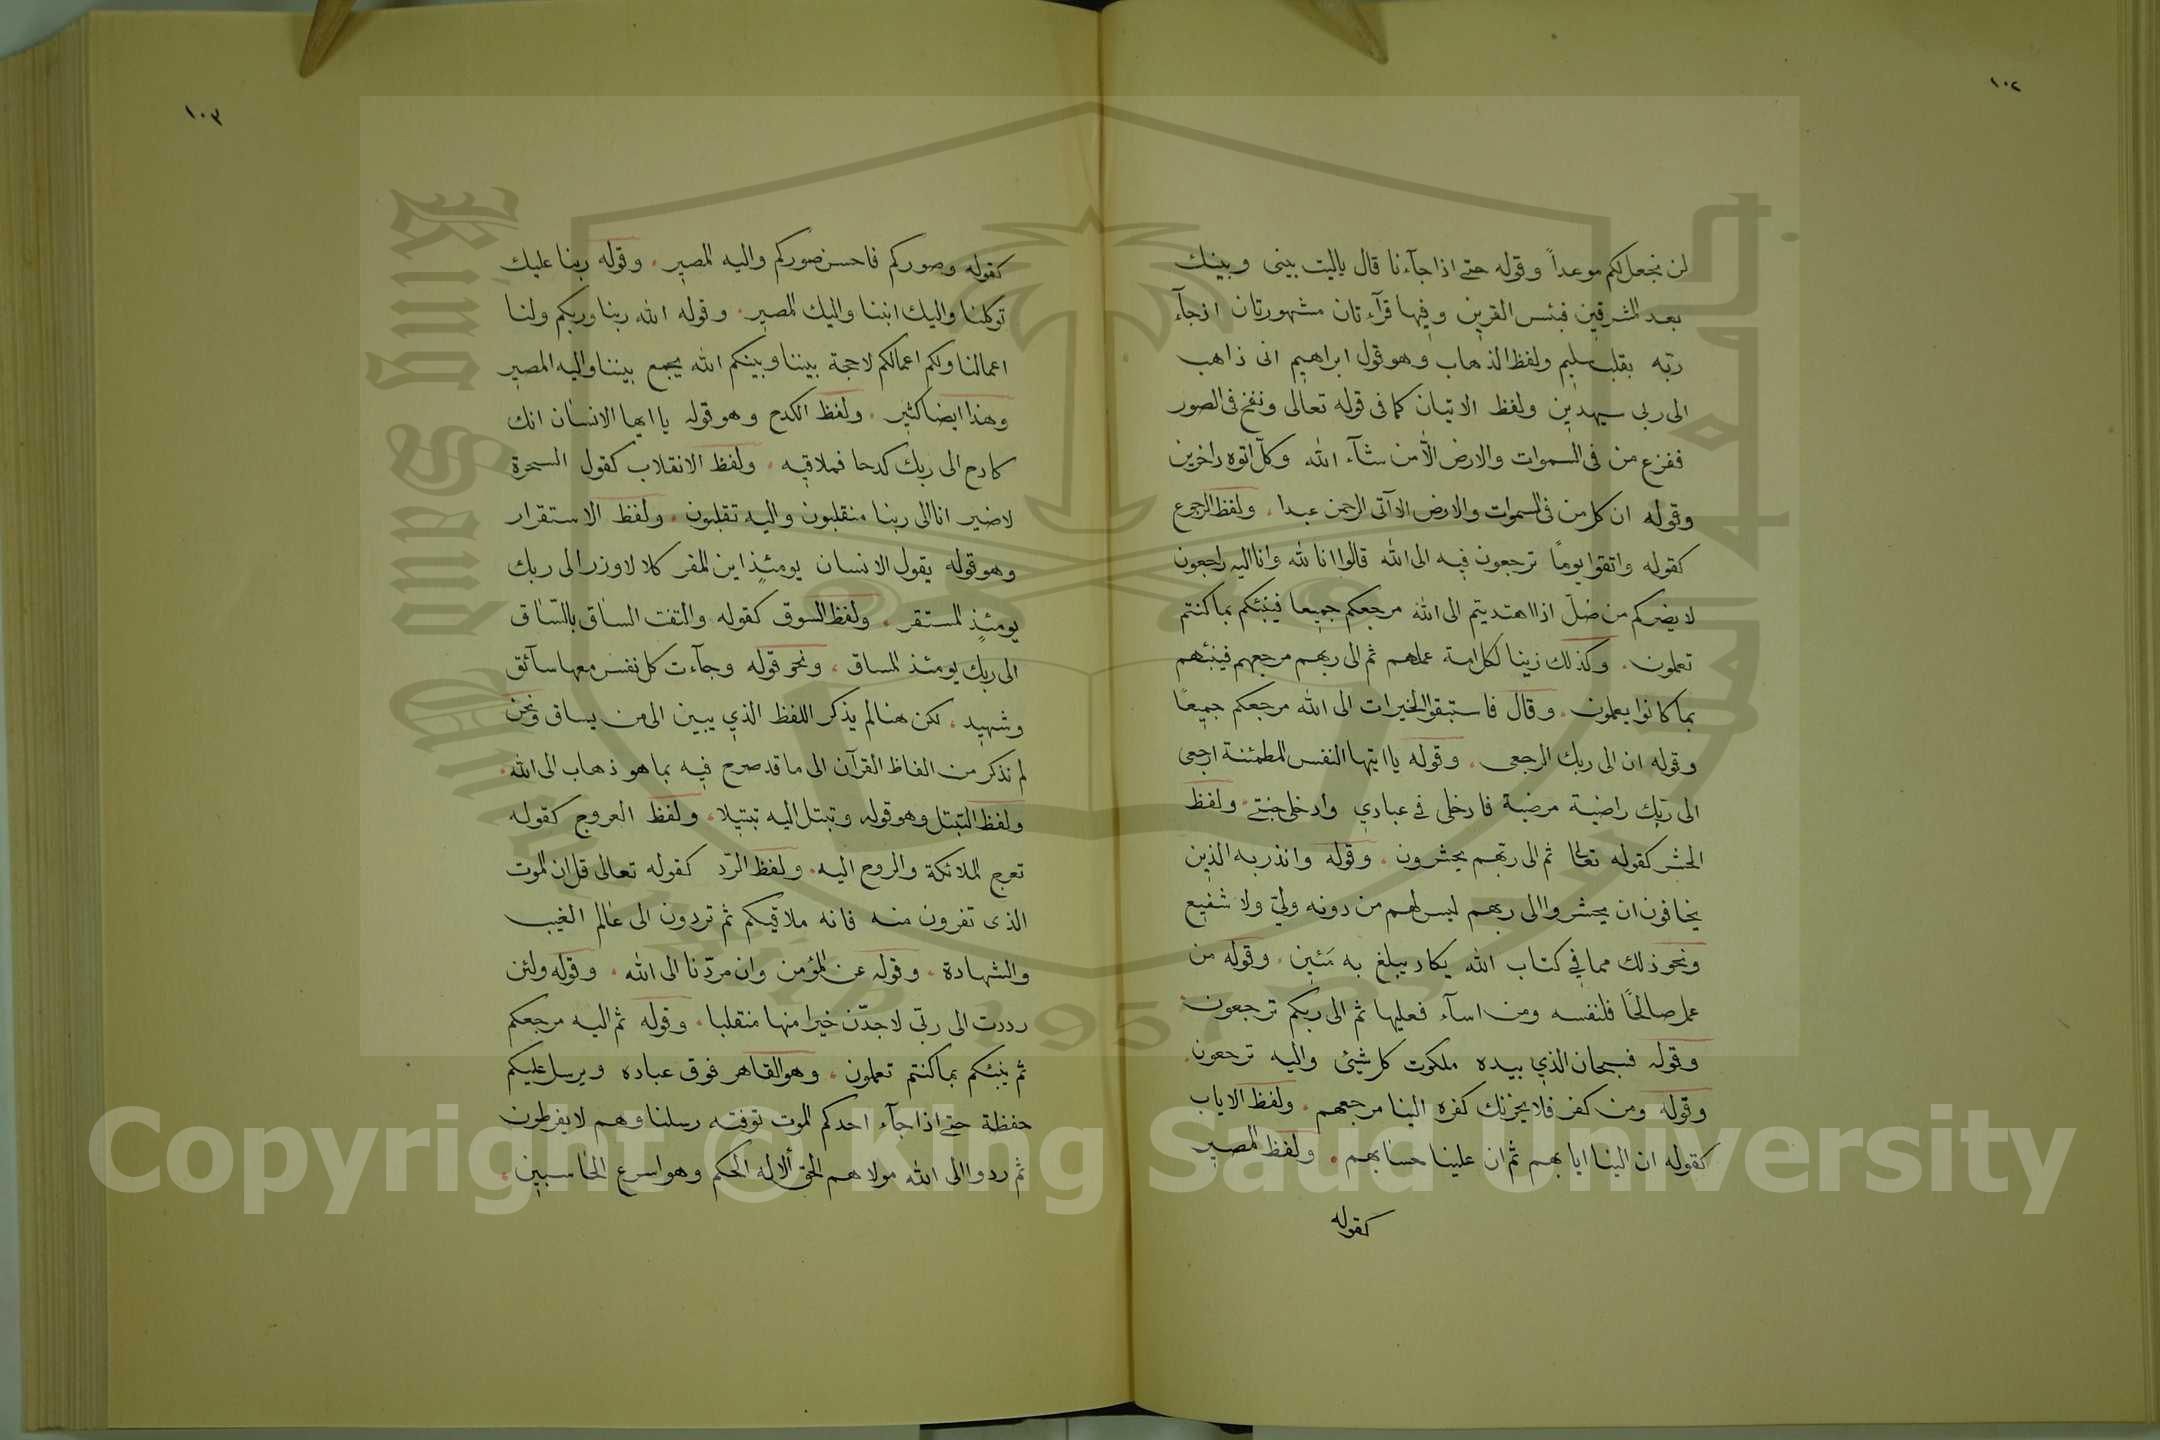 ١٠٢
لن نجعل لكم موعداً وقوله حتى اذا جآءنا قال ياليت بينى وبينك
بعد المشرقين فبئس القرين وفيها قرآءتان مشهورتان اذ جآء
ربّه بقلب سليم ولفظ الذهاب وهو قول ابراهيم انى ذاهب
الى ربى سيهدين ولفظ الاتيان كما فى قوله تعالى ونفخ فى الصور
ففزع من فى السموات والارض الّا من شآء الله وكلّ اتوه داخرين
وقوله ان كل من فى السموات والارض الا آتى الرحمن عبدا . ولفظ الرجوع
كقوله واتقوا يومًا ترجعون فيه الى الله قالوا انا لله وانا اليه راجعون
لا يضركم من ضلّ اذا اهتديتم الى الله مرجعكم جميعا فينبئكم بما كنتم
تعملون . وكذلك زينا لكل امة عملهم ثم الى ربهم مرجعهم فينبئهم
بما كانوا يعملون . وقال فاستبقوا الخيرات الى الله مرجعكم جميعًا
وقوله ان الى ربك الرجعى . وقوله يا ايتها النفس المطمئنة ارجعى
الى ربّك راضية مرضية فادخلى في عبادي وادخلى جنتى . ولفظ
الحشر كقوله تعالى ثم الى ربّهم يحشرون . وقوله وانذر به الذين
يخافون ان يحشروا الى ربهم ليس لهم من دونه وليّ ولا شفيع
ونحو ذلك مما في كتاب الله يكاد يبلغ به مئين . وقوله من
عمل صالحًا فلنفسه ومن اسآء فعليها ثم الى ربكم ترجعون .
وقوله فسبحان الذي بيده ملكوت كل شيئ واليه ترجعون .
وقوله ومن كفر فلا يحزنك كفره الينا مرجعهم . ولفظ الاياب
كقوله ان الينا ايابهم ثم ان علينا حسابهم . ولفظ المصير
كقوله
١٠٣
كقوله وصوركم فاحسن صوركم واليه المصير . وقوله ربنا عليك
توكلنا واليك انبنا واليك المصير . وقوله الله ربنا وربكم ولنا
اعمالنا ولكم اعمالكم لا حجة بيننا وبينكم الله يجمع بيننا واليه المصير
وهذا ايضا كثير . ولفظ الكدح وهو قوله يا ايها الانسان انك
كادح الى ربك كدحا فملاقيه . ولفظ الانقلاب كقول السحرة
لا ضير انا الى ربنا منقلبون واليه تقلبون . ولفظ الاستقرار
وهو قوله يقول الانسان يومئذٍ اين المفر كلا لا وزر الى ربك
يومئذٍ المستقر . ولفظ السوق كقوله والتفت الساق بالسّاق
الى ربك يومئذ المساق . ونحو قوله وجآءت كل نفس معها سآئق
وشهيد . لكن هنا لم يذكر اللفظ الذي يبين الى من يساق ونحن
لم نذكر من الفاظ القرآن الى ما قد صرح فيه بما هو ذهاب الى الله .
ولفظ التبتل وهو قوله وتبتل اليه تبتيلا . ولفظ العروج كقوله
تعرج الملائكة والروح اليه . ولفظ الرّد كقوله تعالى قل ان الموت
الذى تفرون منه فانه ملاقيكم ثم تردون الى عالم الغيب
والشهادة . وقوله عن المؤمن وان مردّنا الى الله . وقوله ولئن
رددت الى ربّى لاجدّن خيرا منها منقلبا . وقوله ثم اليه مرجعكم
ثم ينبئكم بما كنتم تعملون . وهو القاهر فوق عباده ويرسل عليكم
حفظة حتى اذا جآء احدكم الموت توفته رسلنا وهم لا يفرطون
ثم ردوا الى الله مولاهم الحق ألا له الحكم وهو اسرع الحاسبين .
King Saud University
1957
Copyright © King Saud University